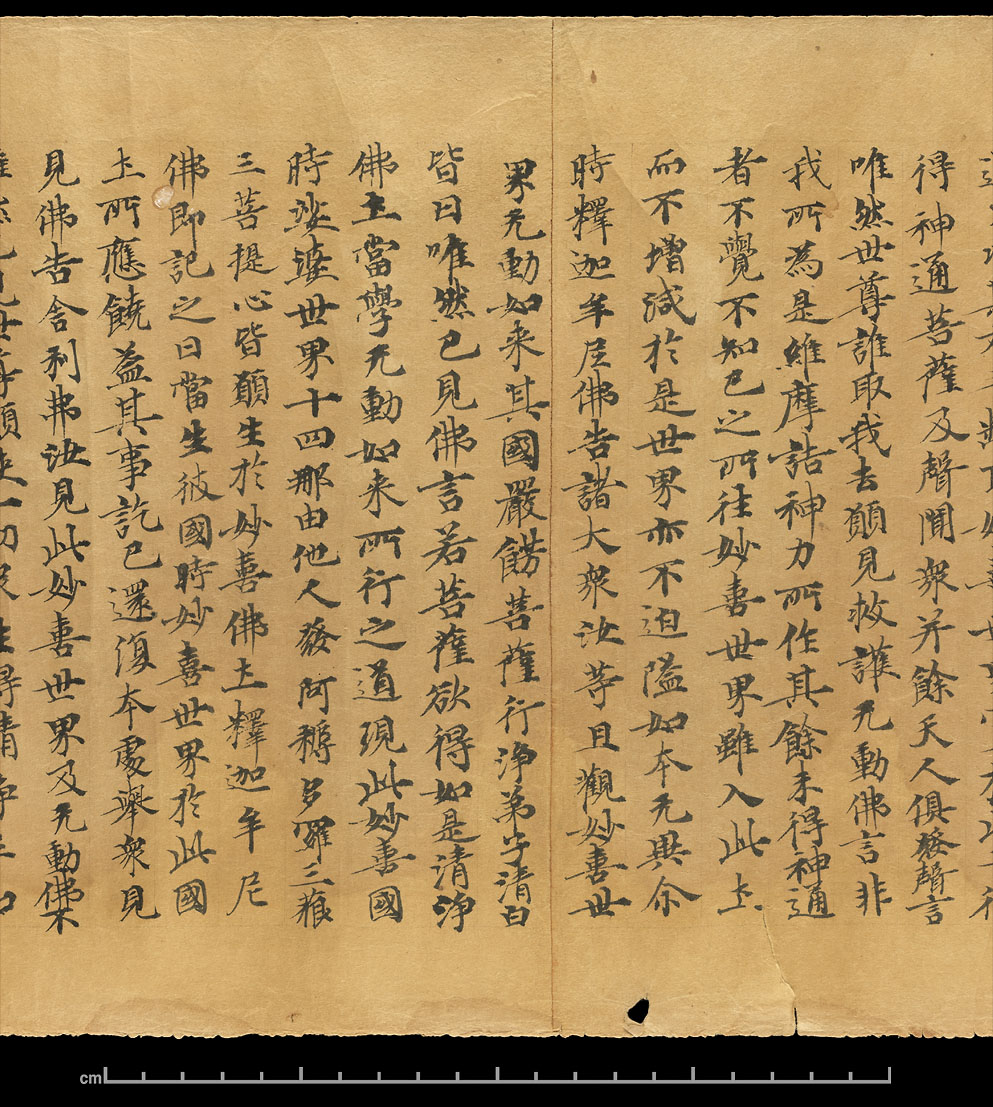 得神通菩薩及聲聞衆并餘天人俱發聲言
唯然世尊誰取我去願見救護无動佛言非
我所為是維摩詰神力所作其餘未得神通
者不覺不知已之所往妙喜世界雖入此土
而不增減於是世界亦不迫隘如本无異尒
時釋迦牟尼佛告諸大衆汝等且觀妙喜世
界无動如来其國嚴餝菩薩行淨弟子清白
皆曰唯然已見佛言若菩薩欲得如是清淨
佛土當學无動如来所行之道現此妙喜國
時娑婆世界十四那由他人發阿耨多羅三藐
三菩提心皆願生於妙喜佛土釋迦牟尼
佛即記之曰當生彼國時妙喜世界於此國
土所應饒益其事訖已還復本處舉衆見
見佛告舍利弗汝見此妙喜世界及无動佛不
cm